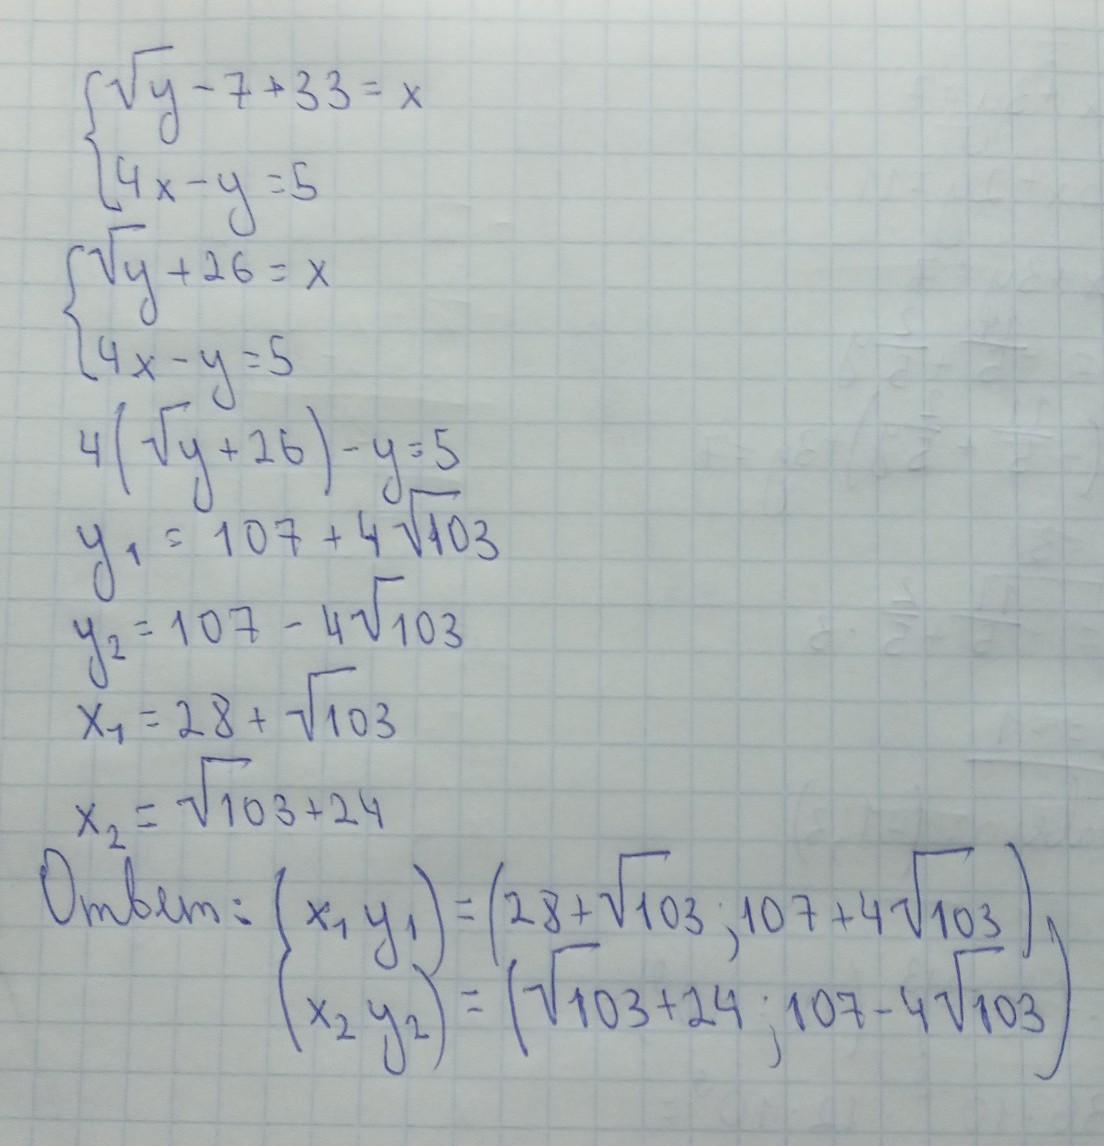 √y - 7 + 33 = x
4x - y = 5
√y + 26 = x
4x - y = 5
4(√y + 26) - y = 5
y₁ = 107 + 4√103
y₂ = 107 - 4√103
x₁ = 28 + √103
x₂ = √103 + 24
Ответ: (x₁ y₁) = (28 + √103 ; 107 + 4√103),
(x₂ y₂) = (√103 + 24 ; 107 - 4√103)